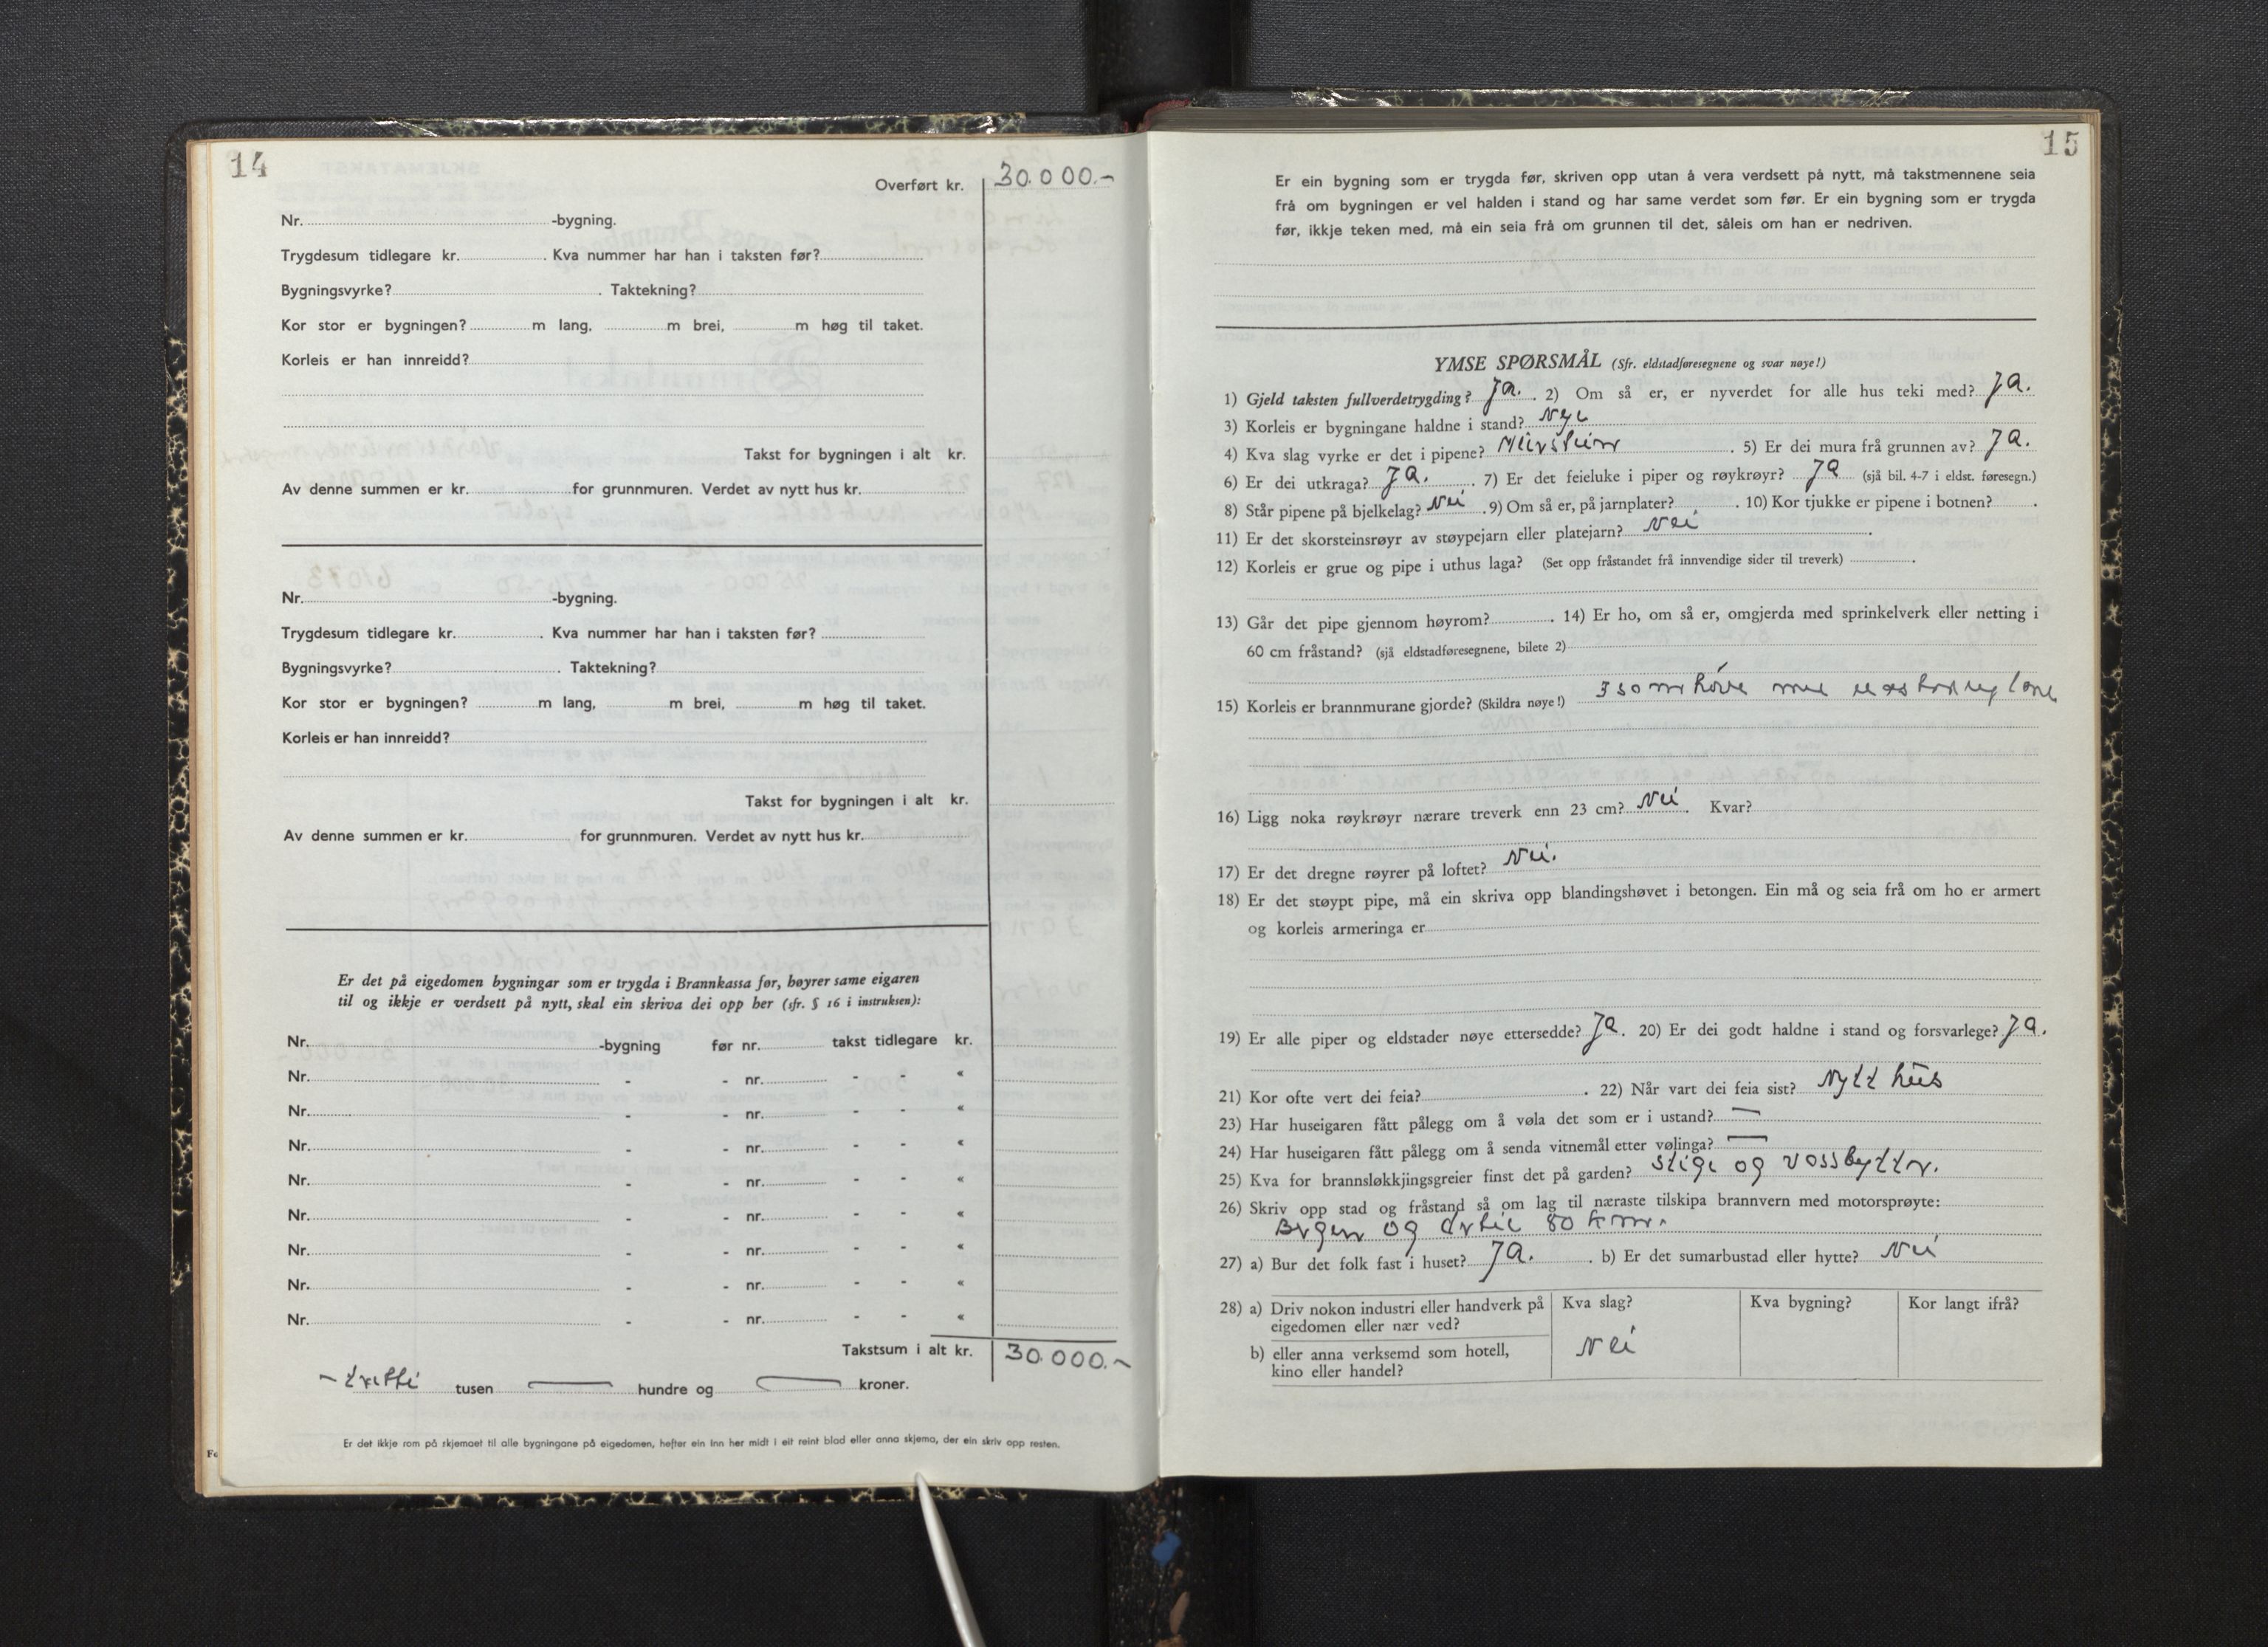 14
Overført kr. 30.000.-
Nr. -bygning.
Trygdesum tidlegare kr. . Kva nummer har han i taksten før?
Bygningsvyrke? . Taktekning?
Kor stor er bygningen? m lang, m brei, m høg til taket.
Korleis er han innreidd?
Takst for bygningen i alt kr.
Av denne summen er kr. for grunnmuren. Verdet av nytt hus kr.
Nr. -bygning.
Trygdesum tidlegare kr. . Kva nummer har han i taksten før?
Bygningsvyrke? . Taktekning?
Kor stor er bygningen? m lang, m brei, m høg til taket.
Korleis er han innreidd?
Takst for bygningen i alt kr.
Av denne summen er kr. for grunnmuren. Verdet av nytt hus kr.
Er det på eigedomen bygningar som er trygda i Brannkassa før, høyrer same eigaren
til og ikkje er verdsett på nytt, skal ein skriva dei opp her (sfr. § 16 i instruksen):
Nr. -bygning før nr. takst tidlegare kr.
Nr. - - nr. - - «
Nr. - - nr. - - «
Nr. - - nr. - - «
Nr. - - nr. - - «
Nr. - - nr. - - «
Nr. - - nr. - - «
Nr. - - nr. - - «
Nr. - - nr. - - «
Takstsum i alt kr. 30.000.-
- tretti tusen — hundre og — kroner.
Er det ikkje rom på skjemaet til alle bygningane på eigedomen, hefter ein inn her midt i eit reint blad eller anna skjema, der ein skriv opp resten.
Fo
15
Er ein bygning som er trygda før, skriven opp utan å vera verdsett på nytt, må takstmennene seia
frå om bygningen er vel halden i stand og har same verdet som før. Er ein bygning som er trygda
før, ikkje teken med, må ein seia frå om grunnen til det, såleis om han er nedriven.
YMSE SPØRSMÅL (Sfr. eldstadføresegnene og svar nøye!)
1) Gjeld taksten fullverdetrygding? Ja. . 2) Om så er, er nyverdet for alle hus teki med? Ja.
3) Korleis er bygningane haldne i stand? Nye
4) Kva slag vyrke er det i pipene? Murstein . 5) Er dei mura frå grunnen av? Ja.
6) Er dei utkraga? Ja. . 7) Er det feieluke i piper og røykrøyr? Ja (sjå bil. 4-7 i eldst. føresegn.)
8) Står pipene på bjelkelag? Nei . 9) Om så er, på jarnplater? . 10) Kor tjukke er pipene i botnen? .
11) Er det skorsteinsrøyr av støypejarn eller platejarn? Nei .
12) Korleis er grue og pipe i uthus laga? (Set opp fråstandet frå innvendige sider til treverk) .
13) Går det pipe gjennom høyrom? . 14) Er ho, om så er, omgjerda med sprinkelverk eller netting i
60 cm fråstand? (sjå eldstadføresegnene, bilete 2)
15) Korleis er brannmurane gjorde? (Skildra nøye!) I samhøve
16) Ligg noka røykrøyr nærare treverk enn 23 cm? Nei . Kvar?
17) Er det dregne røyrer på loftet? Nei.
18) Er det støypt pipe, må ein skriva opp blandingshøvet i betongen. Ein må og seia frå om ho er armert
og korleis armeringa er
19) Er alle piper og eldstader nøye ettersedde? Ja . 20) Er dei godt haldne i stand og forsvarlege? Ja.
21) Kor ofte vert dei feia? . 22) Når vart dei feia sist? Nytt hus
23) Har huseigaren fått pålegg om å vøla det som er i ustand? —
24) Har huseigaren fått pålegg om å senda vitnemål etter vølinga? —
25) Kva for brannsløkkjingsgreier finst det på garden? stige og vassbytter.
26) Skriv opp stad og fråstand så om lag til næraste tilskipa brannvern med motorsprøyte:
og 80 km.
27) a) Bur det folk fast i huset? Ja. . b) Er det sumarbustad eller hytte? Nei
28) a) Driv nokon industri eller handverk på Kva slag? Kva bygning? Kor langt ifrå?
eigedomen eller nær ved?
b) eller anna verksemd som hotell, Nei
kino eller handel?